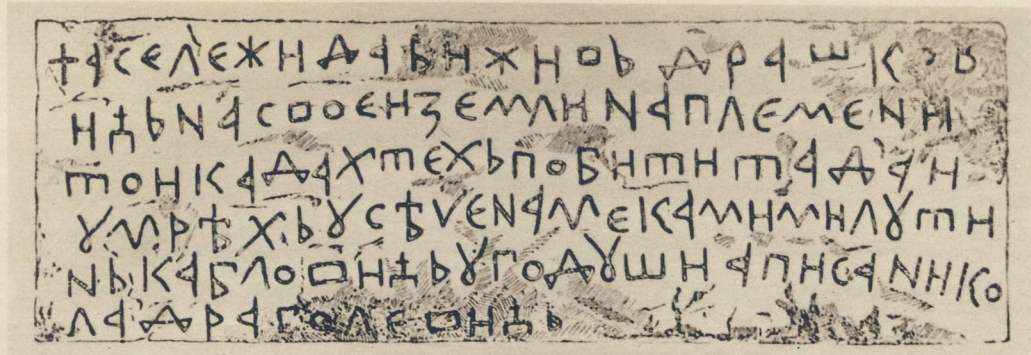 +АСЕЛЕЖИДАБИЖИВЬ ДРАШКОВ
ИЋЬНАСВОЕИЗЕМЛИНАПЛЕМЕНИ
ТОИКАДАХТЕХЬПОБИТИТАДАИ
УМРѢХЬУСѢЧЕНАМЕКАМИМИЛУТИ
НЬКАБЛОВИЋЬУГОДУШИАПИСАНИКО
ЛАДРАГОЛЕВИЋЬ